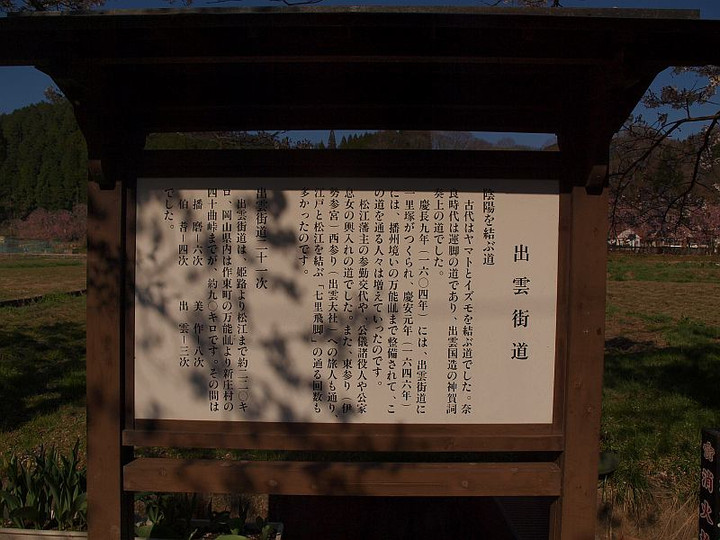 出雲街道
陰陽を結ぶ道
古代はヤマトとイズモを結ぶ道でした。奈
良時代は運脚の道であり、出雲国造の神賀詞
奏上の道でした。
慶長九年（一六〇四年）には、出雲街道に
一里塚がつくられ、慶安元年（一六四六年）
には、播州境いの万能乢まで整備されて、こ
の道を通る人々は増えていったのです。
松江藩主の参勤交代や、公儀諸役人や公家
息女の輿入れの道でした。また、東参り（伊
勢参宮）西参り（出雲大社）への旅人も通り、
江戸と松江を結ぶ「七里飛脚」の通る回数も
多かったのです。
出雲街道二十一次
出雲街道は、姫路より松江まで約二二〇キ
ロ、岡山県内は作東町の万能乢より新庄村の
四十曲峠までが、約九〇キロです。その間は
播磨―六次 美作―八次
伯耆―四次 出雲―三次
でした。
消火